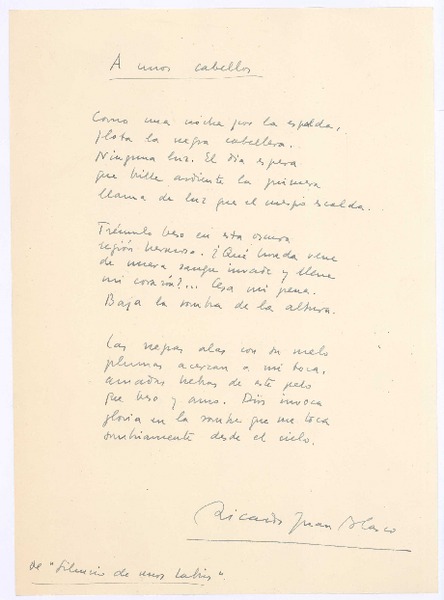 A unos cabellos
Como una noche por la espalda,
flota la negra cabellera.
Ninguna luz. El día espera
que brille ardiente la primera
llama de luz que el cuerpo escalda.
Trémulo beso en esta oscura
región hermosa. ¿Qué honda vena
de nueva sangre invade y llena
mi corazón?... Cesa mi pena.
Baja la sombra de la altura.
Las negras alas con su vuelo
plumas acercan a mi boca,
amadas hebras de este pelo
que beso y amo. Dios invoca
gloria en la sombra que me toca
sombriamente desde el cielo.
Ricardo Juan Blasco
de "Silencio de unos labios".